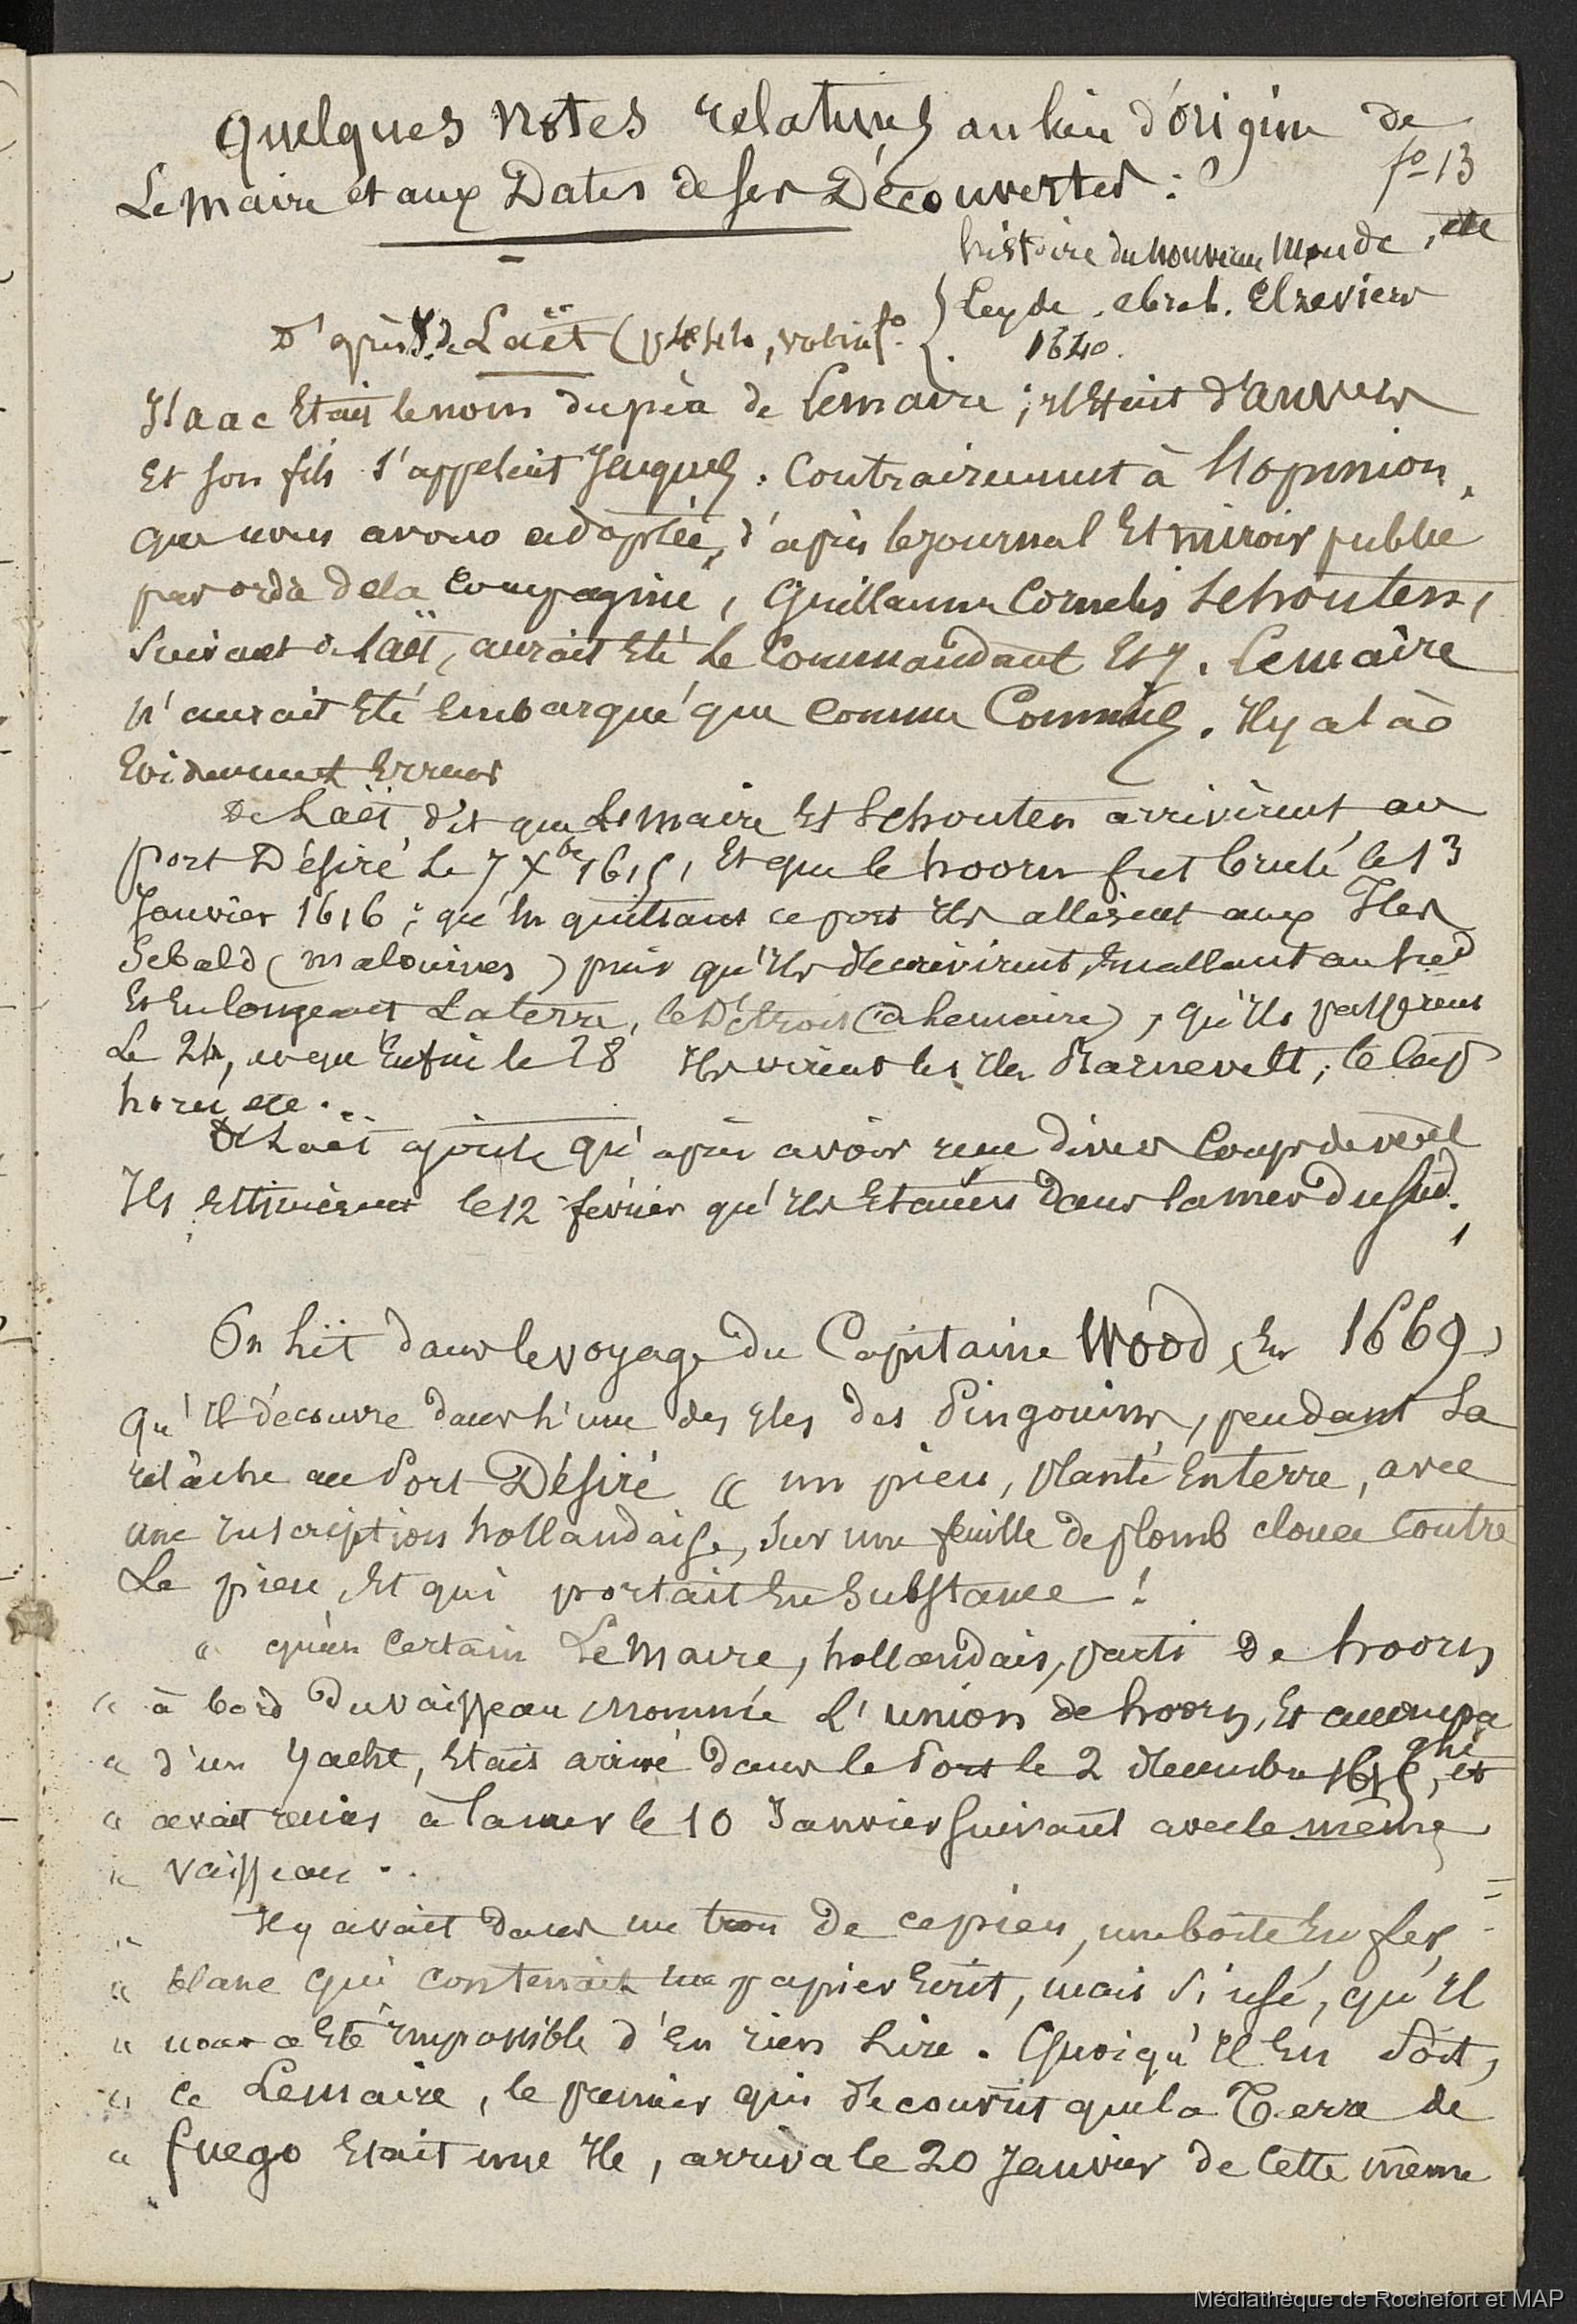 Quelques Notes relatives au lieu d'origine de
f° 13
Lemaire et aux Dates de ses Découvertes :
histoire du nouveau Monde, etc
Leyde. abrah. Elzeviers
1640.
D'après J. de Laët ( vol in f°.
Isaac Etait le nom du père de Lemaire ; il Etait d'anvers
Et son fils s'appelait Jacques. Contrairement à l'opinion,
que nous avons adoptée, d'après le journal Et miroir publié
par ordre de la Compagnie, Guillaume Cornelis Schouten,
suivant de Laët, aurait Eté le Commandant Et J. Lemaire
n'aurait Eté Embarqué que comme Commis. Il y a là
Evidemment Erreur
De Laët dit que Lemaire Et Schouten arrivèrent au
port Désiré le 7 Xbre 1615, Et que le hoorn fut brulé le 13
Janvier 1616 ; qu'En quittant ce port Ils allèrent aux Iles
Sebald (malouines) puis qu'Ils découvrirent, En allant au sud
Et En longeant La terre, le Détroit (de Lemaire), qu'Ils passèrent
Le 24, et qu'Enfin le 28 Ils virent les Iles Barnevelt, le Cap
horn, etc...
De Laët ajoute qu'après avoir reçu divers Coups de vent
Ils Estimèrent le 12 février qu'Ils Etaient Dans la mer du sud.
On lit dans le voyage du Capitaine Wood, En 1669,
qu'Il découvre dans l'une des Iles des Pingouins, pendant sa
relâche au Port Désiré « un pieu, planté En terre, avec
une Inscription hollandaise, sur une feuille de plomb clouée Contre
Le pieu, Et qui portait En Substance !
« qu'un Certain Lemaire, hollandais, parti de hoorn
« à bord du vaisseau nommé L'union de hoorn, Et accompa
gné
« d'un Yacht, Etait arrivé dans le Port le 2 décembre 1615, et
« avait remis à la mer le 10 Janvier suivant avec le même
« vaisseau..
« Il y avait dans un trou de ce pieu, une boîte En fer,
« blanc qui contenait un papier Ecrit, mais si usé, qu'Il
« nous a Eté Impossible d'En rien Lire. Quoiqu'Il En soit,
« ce Lemaire, le premier qui découvrit que la Terra de
« fuego Etait une Ile, arriva le 20 Janvier de Cette même
Médiathèque de Rochefort et MAP